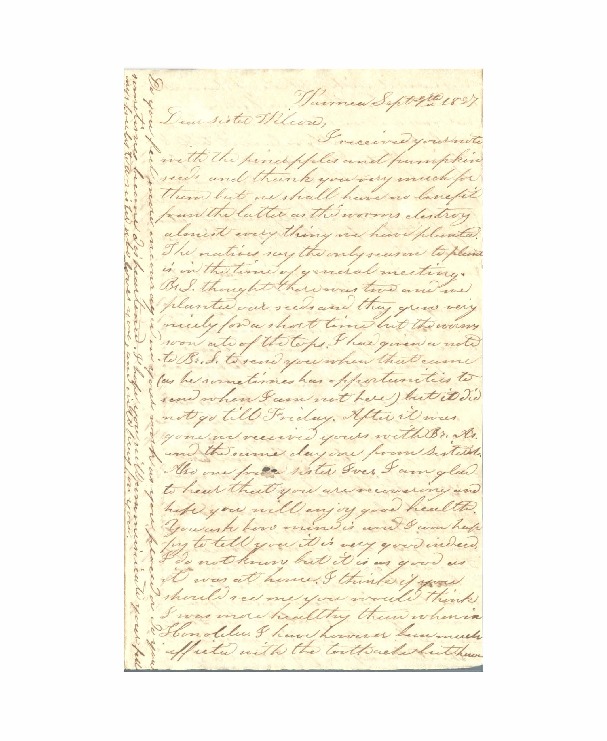 Waimea Sept 9th 1837
Dear sister Wilcox,
I received your note
with the pineapples and pumpkin
seeds and thank you very much for
them but we shall have no benefit
from the latter as the worms destroy
almost every thing we have planted.
The natives say the only season to plant
is in the time of general meeting.
Br. S. thought there was two and we
planted our seeds and they grew very
nicely for a short time but the worms
soon ate of the tops. I had given a note
to Br. S. to send you when that came
(as he sometimes has opportunities to
send when I am not here) but it did
not go till Friday. After it was
gone we received yours with Br.
and the same day one from sister
Also one from sister Ives. I am glad
to hear that you are recovering and
hope you will enjoy good health.
You ask how mine is and I am hap
py to tell you it is very good indeed
I do not know but it is as good as
it was at home. I think if you
should see me you would think
I was more healthy than when in
Honolulu. I have however been much
afflicted with the tooth ache but have
Do you feel more encouraged in your work as your
sometimes become disheartened. I hope you will communicate
my